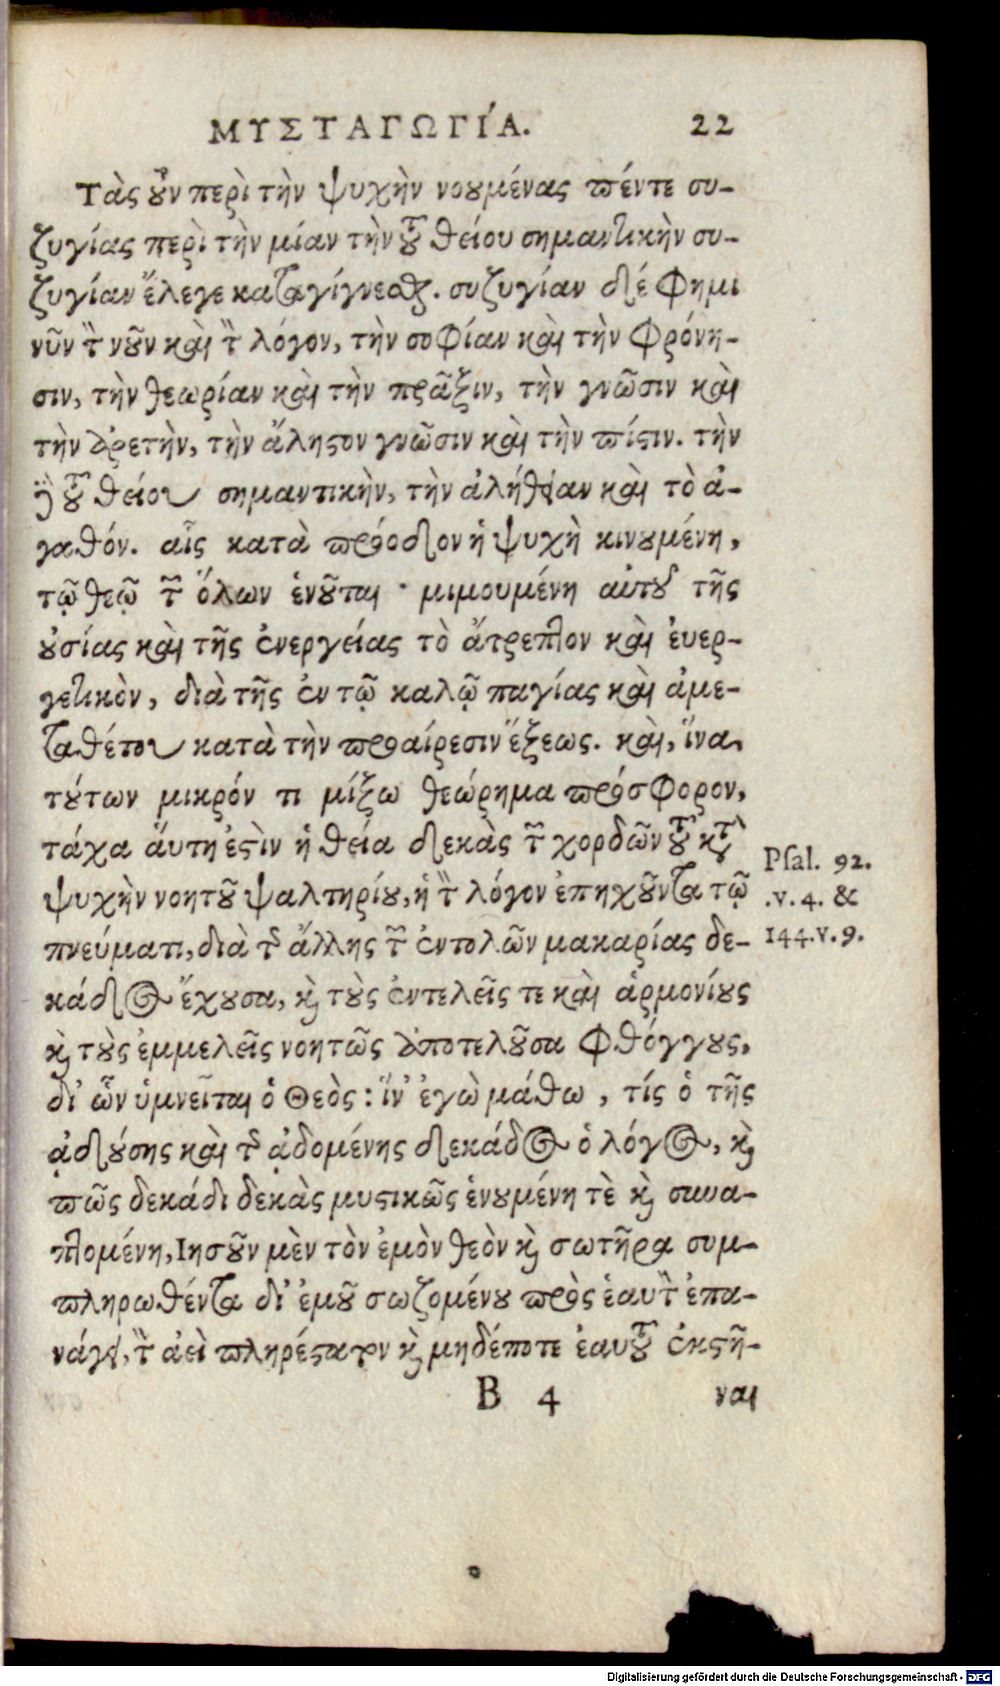 ΜΥΣΤΑΓΩΓΊΑ. 22
Τὰς οὖν περὶ τὴν ψυχὴν νοουμένας πέντε συ-
ζυγίας περὶ τὴν μίαν τὴν τοῦ θείου σημαντικὴν συ-
ζυγίαν ἔλεγε καταγίγνεσθαι. συζυγίαν δέ φημι
νῦν τὸν νοῦν καὶ τὸν λόγον, τὴν σοφίαν καὶ τὴν φρόνη-
σιν, τὴν θεωρίαν καὶ τὴν πρᾶξιν, τὴν γνῶσιν καὶ
τὴν ἀρετὴν, τὴν ἄληστον γνῶσιν καὶ τὴν πίστιν. τὴν
δὲ τοῦ θείου σημαντικὴν, τὴν ἀλήθειαν καὶ τὸ ἀ-
γαθόν. αἷς κατὰ πρόοδον ἡ ψυχὴ κινουμένη,
τῷ θεῷ τῶν ὅλων ἑνοῦται · μιμουμένη αὐτοῦ τῆς
οὐσίας καὶ τῆς ἐνεργείας τὸ ἄτρεπτον καὶ ἐυερ-
γετικὸν, διὰ τῆς ἐν τῷ καλῷ παγίας καὶ ἀμε-
ταθέτου κατὰ τὴν προαίρεσιν ἕξεως. καὶ, ἵνα
τούτων μικρόν τι μίξω θεώρημα πρόσφορον,
τάχα ἅυτη ἐστὶν ἡ θεία δεκὰς τῶν χορδῶν τοῦ κατὰ
ψυχὴν νοητοῦ ψαλτηρίου, ἡ τὸν λόγον ἐπηχοῦντα τῷ
πνεύματι, διὰ τῆς ἄλλης τῶν ἐντολῶν μακαρίας δε-
κάδος ἔχουσα, καὶ τοὺς ἐντελεῖς τε καὶ ἁρμονίους
καὶ τοὺς ἐμμελεῖς νοητῶς ἀποτελοῦσα φθόγγους,
δι᾽ ὧν ὑμνεῖται ὁ Θεὸς: ἵν᾽ ἐγὼ μάθω, τίς ὁ τῆς
ᾀδούσης καὶ τῆς ᾀδομένης δεκάδος ὁ λόγος, καὶ
πῶς δεκάδι δεκὰς μυστικῶς ἑνουμένη τὲ καὶ συνα-
πτομένη, Ἰησοῦν μὲν τὸν ἐμὸν θεὸν καὶ σωτῆρα συμ-
πληρωθέντα δι᾽ ἐμοῦ σωζομένου πρὸς ἑαυτὸν ἐπα-
νάγει, τὸν ἀεὶ πληρέστατον καὶ μηδέποτε ἑαυτοῦ ἐκστῆ-
B 4 ναι
Psal. 92.
.v. 4. &
144. v. 9.
Digitalisierung gefördert durch die Deutsche Forschungsgemeinschaft - DFG